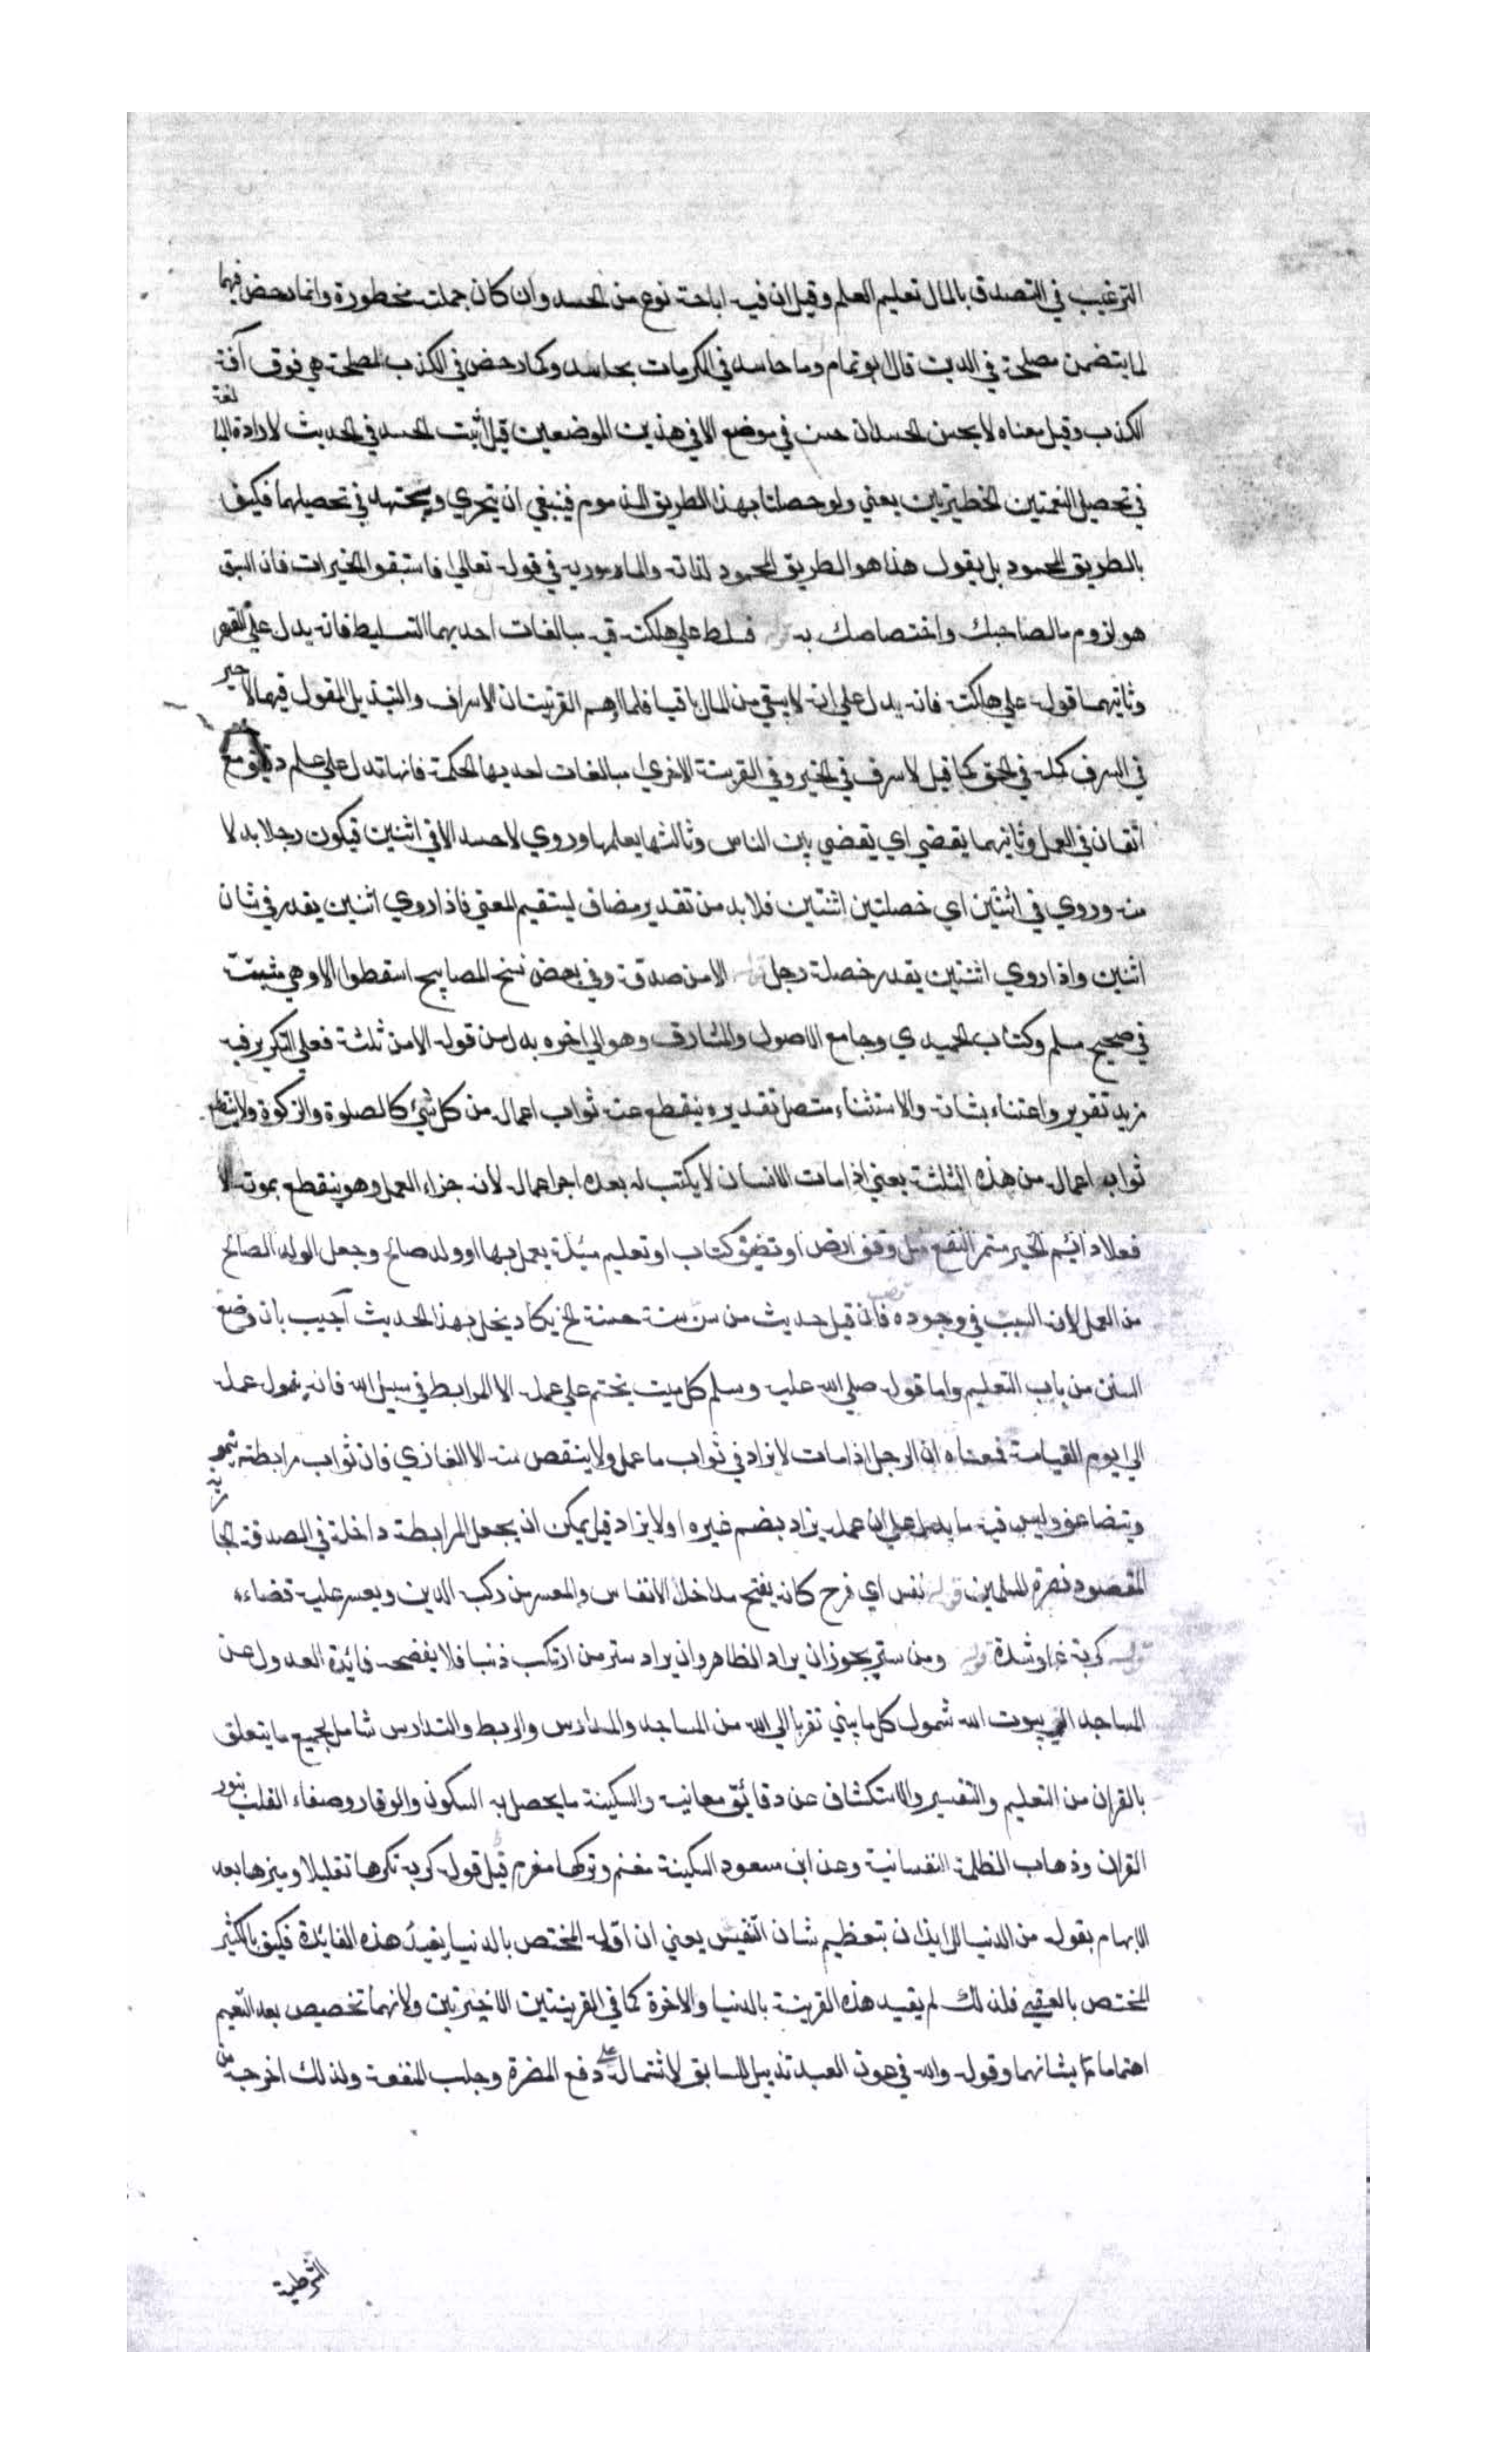 الترغيب في التصدق بالمال تعليم العلم وقيل ان فيه اباحة نوع من الحسد وان كان جملته محظورة وانما رخص فيهما
لما يتضمن مصلحة في الدين قال ابو تمام وما حاسد في المكرمات بحاسد وكما رخص في الكذب لمصلحة هي فوق آفة
الكذب وقيل معناه لا يحسن الحسد ان حسن في موضع الا في هذين الموضعين قيل أثبت الحسد في الحديث لارادة المبالغة
في تحصيل النعمتين الخطيرتين يعني ولو حصلتا بهذا الطريق المذموم فينبغي ان يتحرى ويجتهد في تحصيلهما فكيف
بالطريق المحمود بل يقول هذا هو الطريق المحمود لذاته والمامور به في قوله تعالى فاستبقوا الخيرات فان السبق
هو لزوم ما لصاحبك واختصاصك به فسلط على هلكته فيه مبالغات احديهما التسليط فانه يدل على القهر
وثانيهما قوله على هلكته فانه يدل على انه لا يبقي من المال باقيا فلما اوهم القرينتان الاسراف والتبذير المقول فيهما لا خير
في السرف كمله في الحق كما قيل لا سرف في الخير وفي القرينة الاخرى مبالغات احديها الحكمة فانها تدل على علم دقيق مع
اتقان في العمل وثانيهما يقضي اي يقضي بين الناس وثالثها يعلمها وروي لا حسد الا في اثنين فيكون رجلا بدلا
منه وروي في اثنتين اي خصلتين اثنتين فلا بد من تقدير مضاف ليستقيم المعنى فاذا روي اثنين يقدر في شان
اثنين واذا روي اثنتين يقدر خصلة رجل الا من صدقة وفي بعض نسخ المصابيح اسقطوا الا وهي مثبتة
في صحيح مسلم وكتاب الحميدي وجامع الاصول والمشارق وهو الى اخره بدل من قوله الا من ثلثة فعلى التكرير فيه
مزيد تقرير واعتناء بشانه والاستثناء متصل تقديره ينقطع عنه ثواب اعماله من كل شيء كالصلوة والزكوة ولا ينقطع
ثواب اعماله من هذه الثلثة يعني اذا مات الانسان لا يكتب له بعده اجر اعماله لانه جزاء العمل وهو ينقطع بموته الا
فعلا دائم الخير مستمر النفع مثل وقف ارض او تصنيف كتاب او تعليم مسئلة يعمل بها او ولد صالح وجعل الولد الصالح
من العمل لانه السبب في وجوده فان قيل حديث من سن سنة حسنة الخ يكاد يخل بهذا الحديث أجيب بان وضع
السنن من باب التعليم واما قوله صلى الله عليه وسلم كل ميت يختم على عمله الا المرابط في سبيل الله فانه ينمو له عمله
الى يوم القيامة فمعناه ان الرجل اذا مات لا يزاد في ثواب ما عمل ولا ينقص منه الا الغازي فان ثواب مرابطته ينمو
ويتضاعف وليس فيه ما يدل على ان عمله يزاد بضم غيره او لا يزاد قيل يمكن ان يجعل المرابطة داخلة في الصدقة الجارية
المقصود نصرة المسلمين قوله نفس اي فرح كانه يفتح مداخل الانفاس والمعسر من ركب الدين ويعسر عليه قضاءه
قوله كربة غم او شدة قوله ومن ستر يجوز ان يراد الظاهر وان يراد ستر من ارتكب ذنبا فلا يفضحه فائدة العدول عن
المساجد الى بيوت الله شمول كل ما يبنى تقربا الى الله من المساجد والمدارس والربط والتدارس شامل لجميع ما يتعلق
بالقران من التعليم والتفسير والاستكشاف عن دقائق معانيه والسكينة ما يحصل به السكون والوقار وصفاء القلب بنور
القران وذهاب الظلمة النفسانية وعن ابن مسعود السكينة مغنم وتركها مغرم قيل قوله كربة نكرها تقليلا وميزها بعد
الابهام بقوله من الدنيا للايذان بتعظيم شان التنفيس يعني ان اقله المختص بالدنيا يفيد هذه الفائدة فكيف بالكثير
المختص بالعقبى فلذلك لم يقيد هذه القرينة بالدنيا والاخرة كما في القرينتين الاخيرتين ولانهما تخصيص بعد التعميم
اهتماما بشانهما وقوله والله في عون العبد تذييل للسابق لاشتماله على دفع المضرة وجلب المنفعة ولذلك اخرجه من
الشرطية